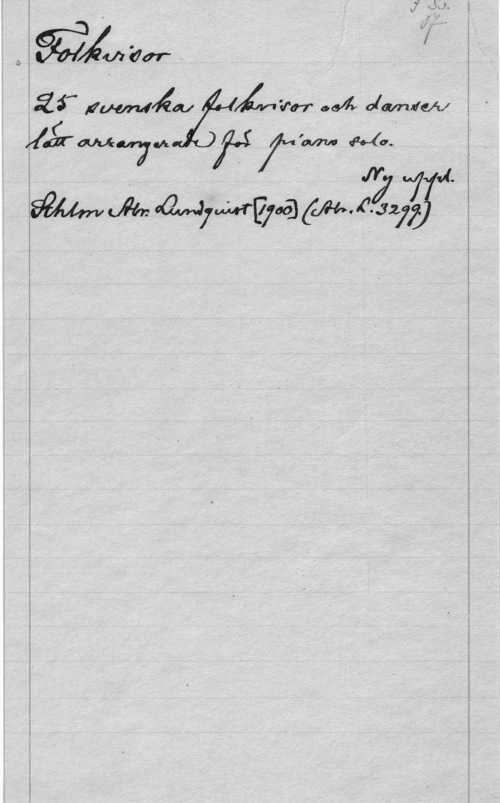 Folkvisor
25 svenska folkvisor och danser
lätt arrangerade för piano solo.
Ny uppl.
Sthlm Abr. Lundquist [1900] (Abr. L. 3299.)